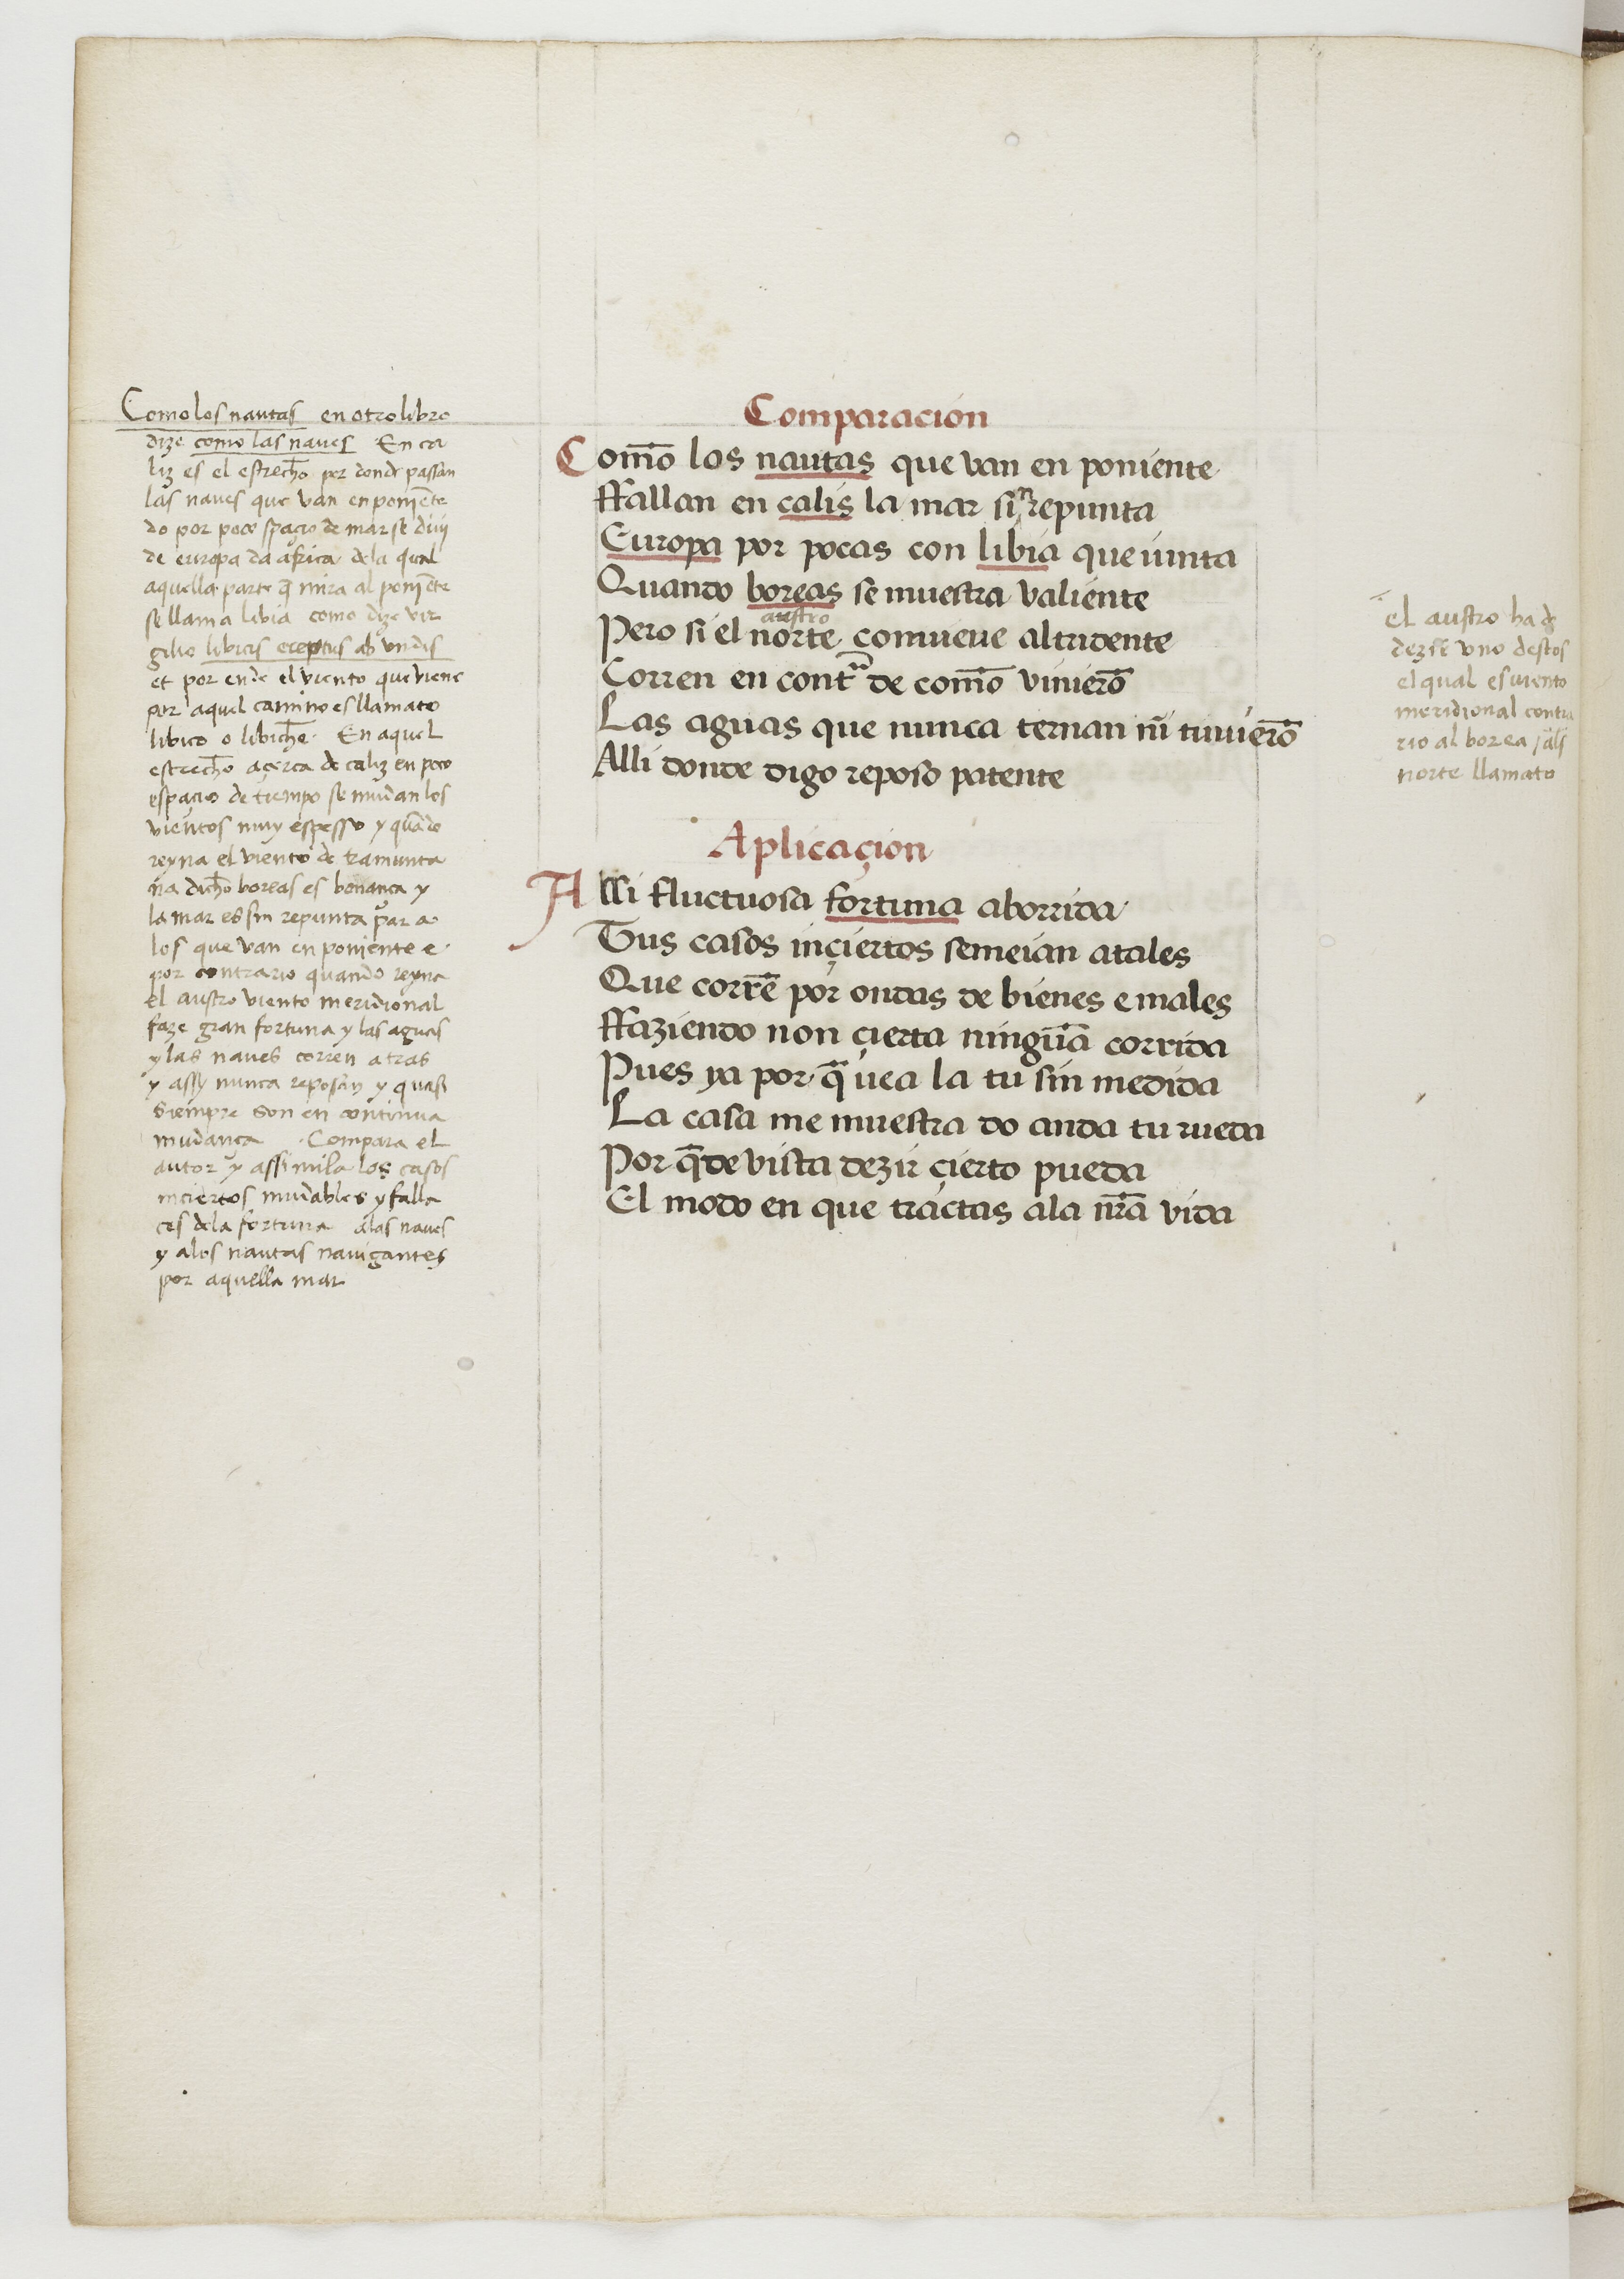 Comolos nautas en otro libro
dize como las naues En ca
liz es el estrecho por donde passan
las naues que van en poniẽte
do por poco spaçio de mar se diui
de europa da africa dela qual
aquella parte q̃ mira al poniẽte
se llama libia como dize vir
gilio libicis ereptus ab vndis
et por ende el viento que viene
por aquel camino es llamato
libico o libiche. En aquel
estrecho açerca de caliz en poco
espaçio de tiempo se mudan los
vientos muy espesso y quãdo
reyna el viento de tramunta
na dicho boreas es bonança y
la mar es sin repunta par a
los que van en poniente e
por contrario quando reyna
el austro viento meridional
faze gran fortuna y las aguas
y las naues corren atras
y assy nunca reposan y quasi
siempre son en continua
mudança . Compara el
autor y assimila los casos
inciertos mudables y falla
ces dela fortuna alas naues
y alos nautas nauigantes
por aquella mar
Comparacion
Com̃o los nautas que van en poniente
ffallan en calis la mar sin repunta
Europa por pocas con libia que iunta
Quando boreas se muestra valiente
austro
Pero si el norte comueue al tridente
Corren en contra de com̃o vinierõ
Las aguas que nunca ternan nĩ tuuierõ
Alli donde digo reposo patente
Aplicaçion
Alli fluctuosa fortuna aborrida
Tus casos inçiertos semeian atales
Que corrẽ por ondas de bienes e males
ffaziendo non çierta ningũa corrida
Pues ya por q̃ vea la tu sin medida
La casa me muestra do anda tu rueda
Por q̃ de vista dezir çierto pueda
El modo en que tractas ala nr̃a vida
el austro ha d̃
dezir vno destos
el qual es viento
meridional contra
rio al borea
norte llamato